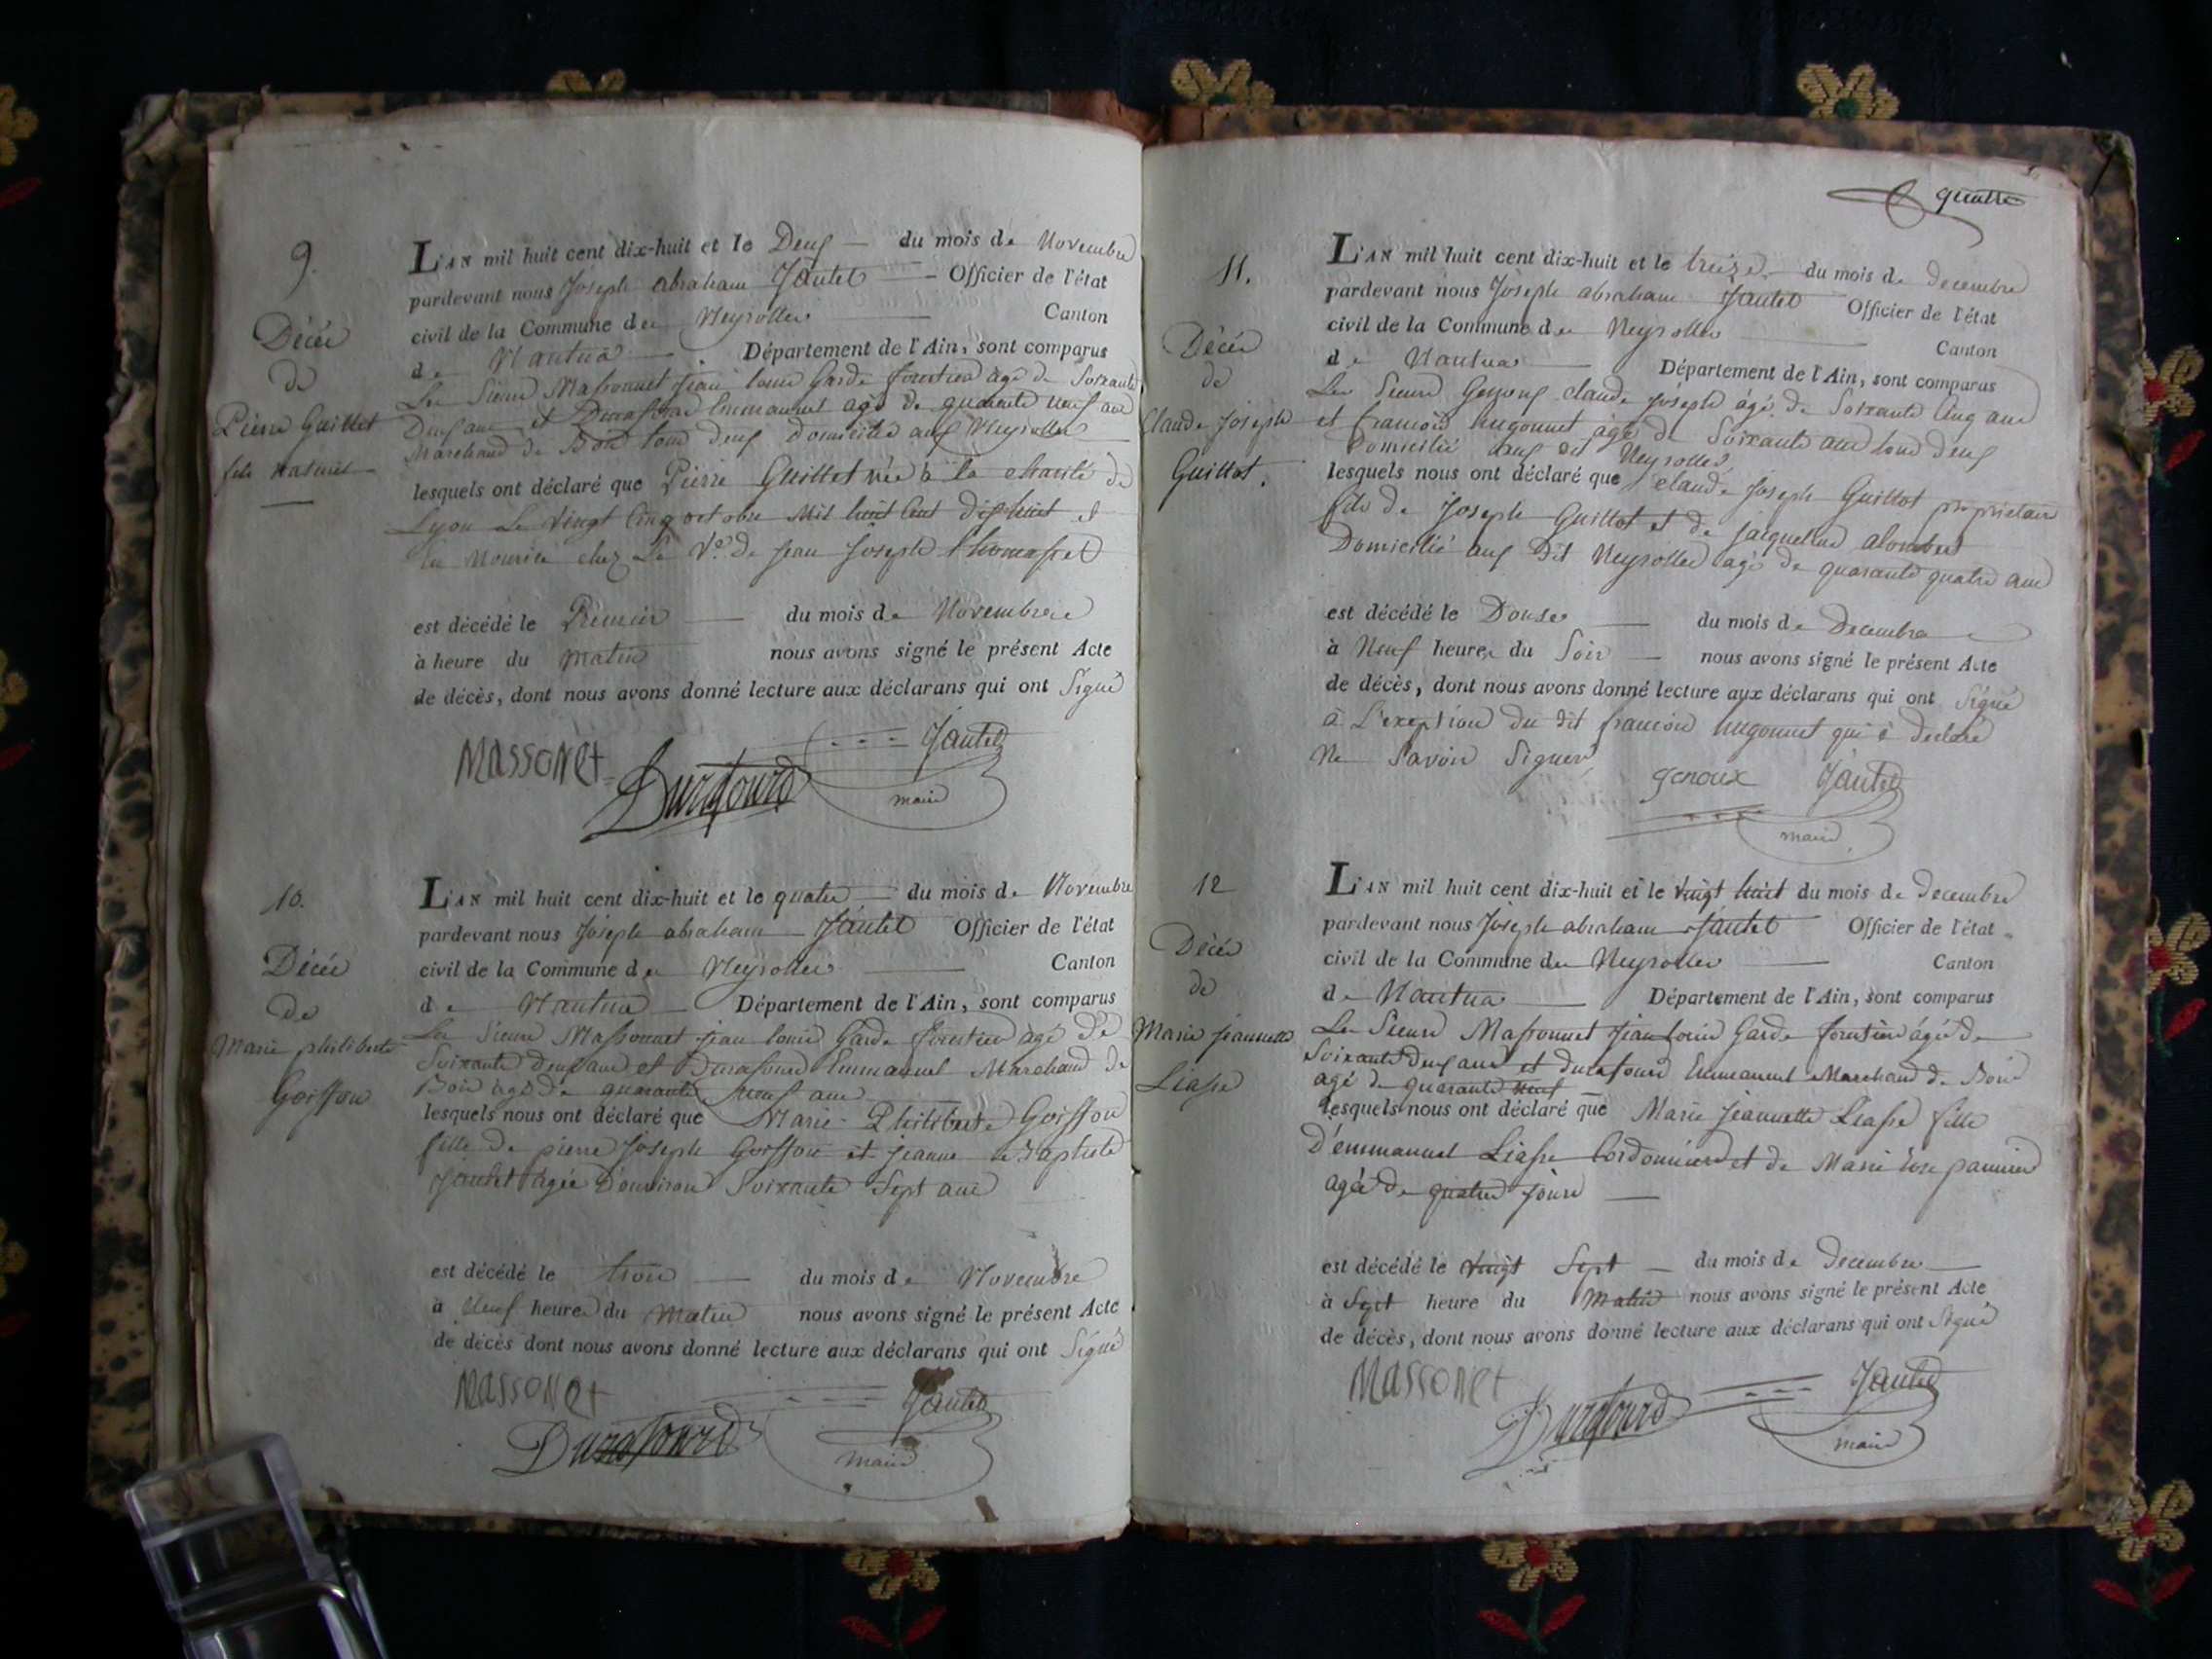 9.
Décée
de
Pierre Guillet
fils naturel
L'AN mil huit cent dix-huit et le Deux du mois de Novembre
pardevant nous Joseph abraham Jantet Officier de l'état
civil de la Commune des Neyrolles Canton
de Nantua . Département de l'Ain, sont comparus
Les Sieurs Massonnet Jean louis Garde forestier agé de Soixante
Deux ans et Durafourd Emmanuel agé de quarante neuf ans
Marchand de Bois tous deux domiciliés aux Neyrolles
lesquels ont déclaré que Pierre Guillet née à la charité de
Lyon Le vingt Cinq octobre Mil huit Cent Dix huit et
en Nourice chez La Ve. de Jean Joseph thomasset
est décédé le Premier du mois de Novembre
à heure du matin nous avons signé le présent Acte
de décès, dont nous avons donné lecture aux déclarans qui ont Signé
Massonet Durafourd Jantet
maire
10.
Décée
de
Marie philiberte
Goiffon
L'AN mil huit cent dix-huit et le quatre du mois de Novembre
pardevant nous Joseph abraham Jantet Officier de l'état
civil de la Commune des Neyrolles Canton
de Nantua Département de l'Ain, sont comparus
Les Sieurs Massonnet Jean louis Garde forestier agé de
Soixante Deux ans et Durafourd Emmanuel Marchand de
Bois agé de quarante neuf ans
lesquels nous ont déclaré que Marie Philiberte Goiffon
fille de pierre Joseph Goiffon et jeanne Baptiste
Jantet agée D'environ Soixante Sept ans
est décédé le trois du mois de Novembre
à Neuf heures du matin nous avons signé le présent Acte
de décès dont nous avons donné lecture aux déclarans qui ont Signé
Massonet Jantet
Durafourd maire
quatre
11.
Décée
de
Claude Joseph
Guillot.
L'AN mil huit cent dix-huit et le treize du mois de decembre
pardevant nous Joseph abraham Jantet Officier de l'état
civil de la Commune des Neyrolles Canton
de Nantua Département de l'Ain, sont comparus
Les Sieurs claude joseph agé de Soixante Cinq ans
et francois hugonnet agé de Soixante ans tous deux
Domicilié aux dit Neyrolles
lesquels nous ont déclaré que claude Joseph Guillot proprietaire
fils de Joseph Guillot et de jacqueline alombert
Domicilié aux Dit Neyrolles agé de quarante quatre ans
est décédé le Douse du mois de Decembre
à Neuf heures du Soir nous avons signé le présent Acte
de décès, dont nous avons donné lecture aux déclarans qui ont Signé
à L'exeption du dit francois hugonnet qui à declaré
Ne Savoir Signer
genoux Jantet
maire
12
Décée
de
Marie Jeannette
Liasse
L'AN mil huit cent dix-huit et le vingt huit du mois de Decembre
pardevant nous Joseph abraham Jantet Officier de l'état
civil de la Commune des Neyrolles Canton
de Nantua Département de l'Ain, sont comparus
Les Sieurs Massonnet Jean Louis Garde forestier ágé de
Soixante Deux ans et durafourd Emmanuel Marchand de Bois
agé de quarante neuf
lesquels nous ont déclaré que Marie Jeannette Liasse fille
D'emmanuel Liasse Cordonnier et de Marie
agée de quatre jours
est décédé le vingt Sept du mois de Decembre
à Sept heure du Matin nous avons signé le présent Acte
de décès, dont nous avons donné lecture aux déclarans qui ont Signé
Massonet Durafourd Jantet
maire